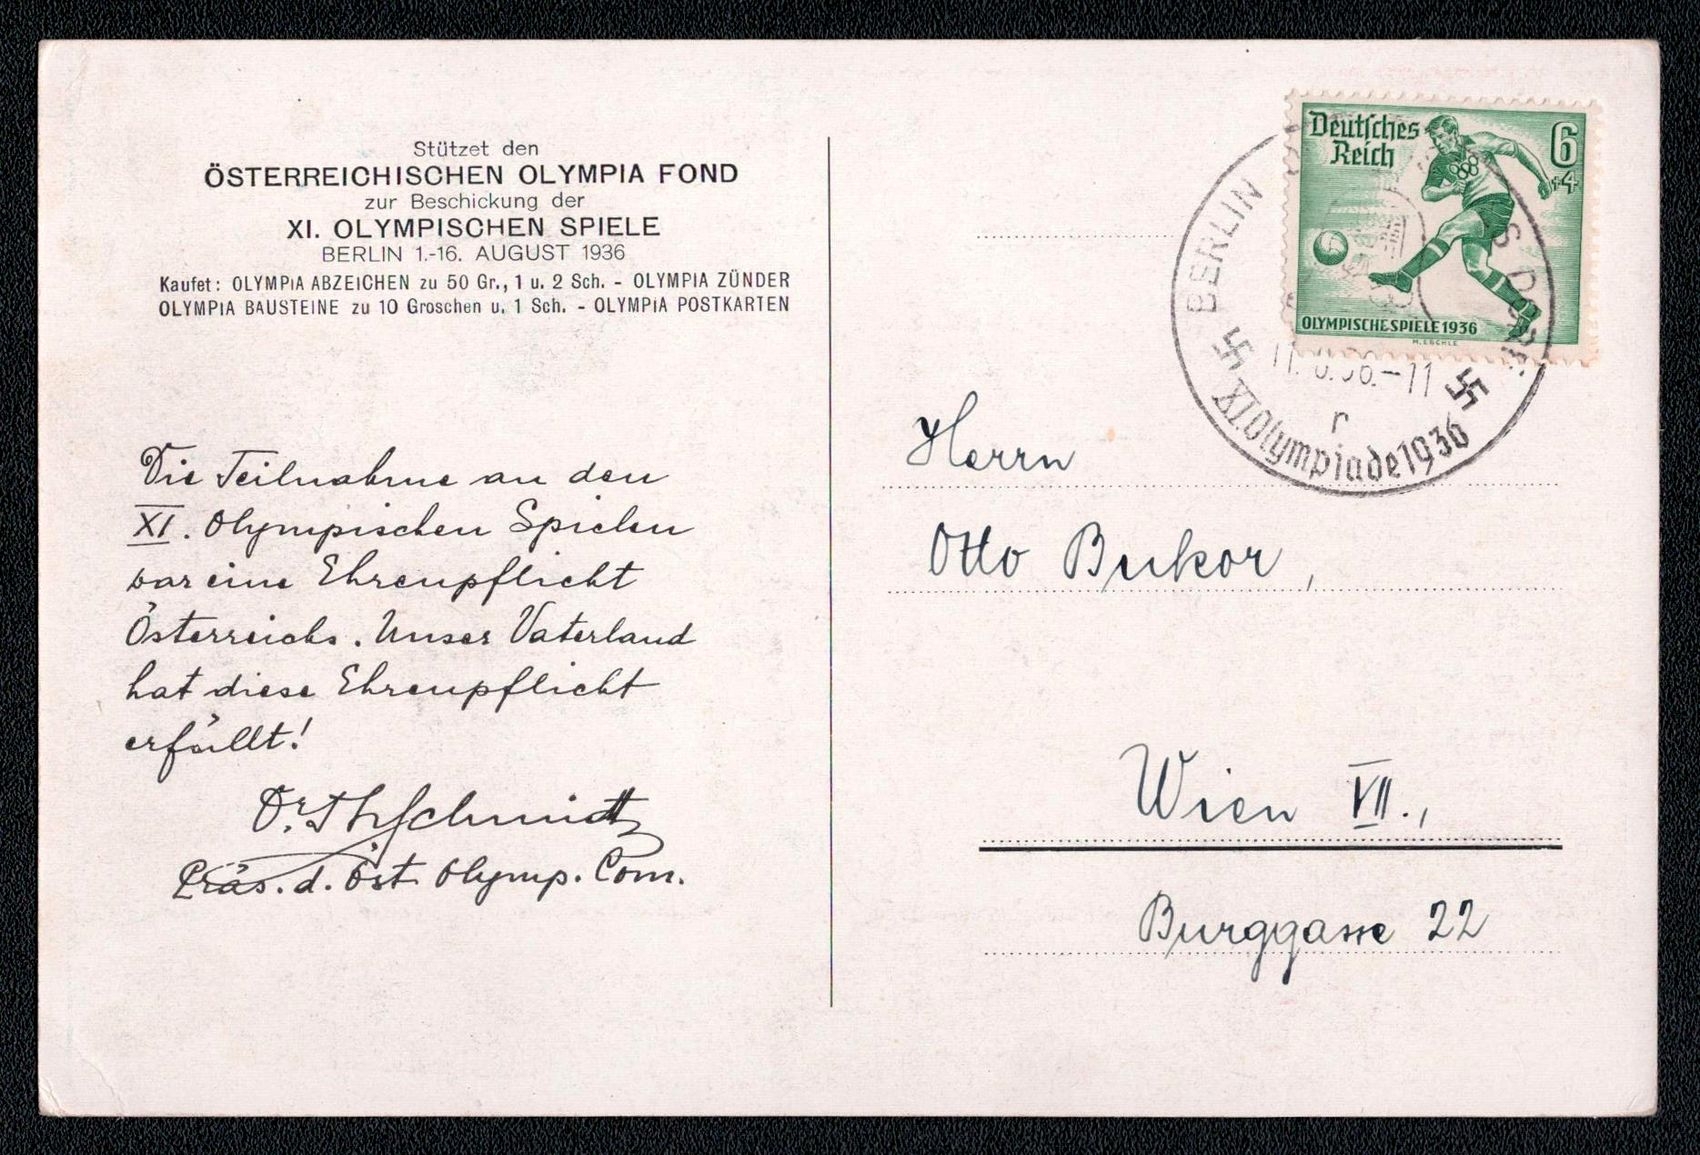 Stützet den
ÖSTERREICHISCHEN OLYMPIA FOND
zur Beschickung der
XI. OLYMPISCHEN SPIELE
BERLIN 1.-16. AUGUST 1936
Kaufet: OLYMPIA ABZEICHEN zu 50 Gr., 1 u. 2 Sch. - OLYMPIA ZÜNDER
OLYMPIA BAUSTEINE zu 10 Groschen u. 1 Sch. - OLYMPIA POSTKARTEN
Die Teilnahme an den
XI. Olympischen Spielen
war eine Ehrenpflicht
Österreichs. Unser Vaterland
hat diese Ehrenpflicht
erfüllt!
Dr. Th Schmidt
Präs. d. Öst. Olymp. Com.
Deutsches
Reich
6
+4
OLYMPISCHE SPIELE 1936
M. ESCHLE
BERLIN
r
XI. Olympiade 1936
Herrn
Otto Bukor,
Wien VII.,
Burggasse 22